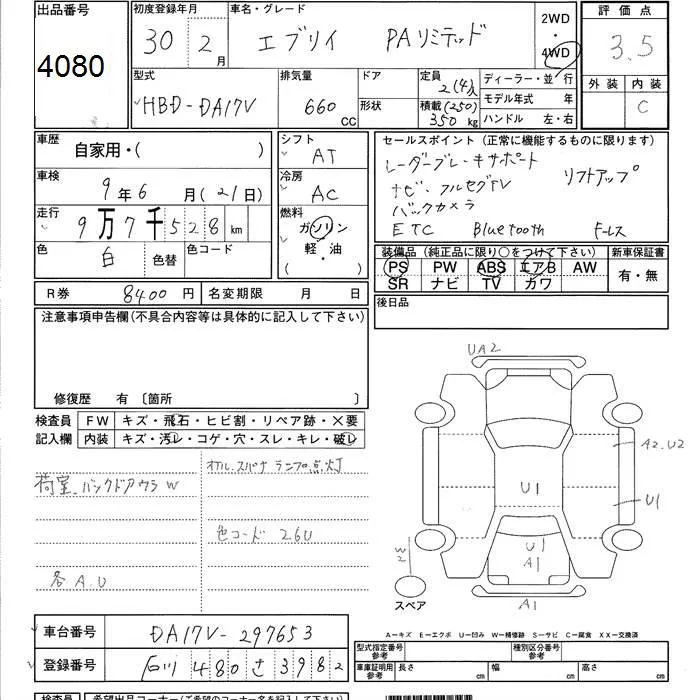 出品番号
4080
初度登録年月
30年 2月
車名・グレード
エブリイ PAリミテッド
2WD
・
4WD
評価点
3.5
外装 内装
C
型式
HBD-DA17V
排気量
660 cc
ドア
形状
定員 2(4)人
積載(250) 350kg
ディーラー・並行
モデル年式 年
ハンドル 左・右
車歴
自家用・( )
シフト
AT
車検
9年6月(21日)
冷房
AC
走行
9万7千528km
燃料
ガソリン
軽・油
( ・ )
色
白
色替
色コード
セールスポイント(正常に機能するものに限ります)
レーダーブレーキサポート リフトアップ
ナビ・フルセグTV
バックカメラ
ETC Bluetooth F-レス
装備品(純正品に限り○をつけて下さい) 新車保証書
PS PW ABS エアB AW
SR ナビ TV カワ
有・無
R券 8400円 名変期限 月 日
後日品
注意事項申告欄(不具合内容等は具体的に記入して下さい)
修復歴 有〔箇所 〕
検査員
記入欄
FW キズ・飛石・ヒビ割・リペア跡・X要
内装 キズ・汚レ・コゲ・穴・スレ・キレ・破レ
荷室、バックドアウラW
オイル、スパナランプ点灯
色コード 26U
各A.U
UA2
A2.U2
U1
U1
U1
A1
W2
スペア
A1
A-キズ E-エクボ U-凹み W-補修跡 S-サビ C-腐食 XX-交換済
車台番号 DA17V-297653
登録番号 石川 480 さ 3982
型式指定番号 参考
種別区分番号 参考
車庫証明用 参考 長さ cm 幅 cm 高さ cm
検査員
希望出品コーナー